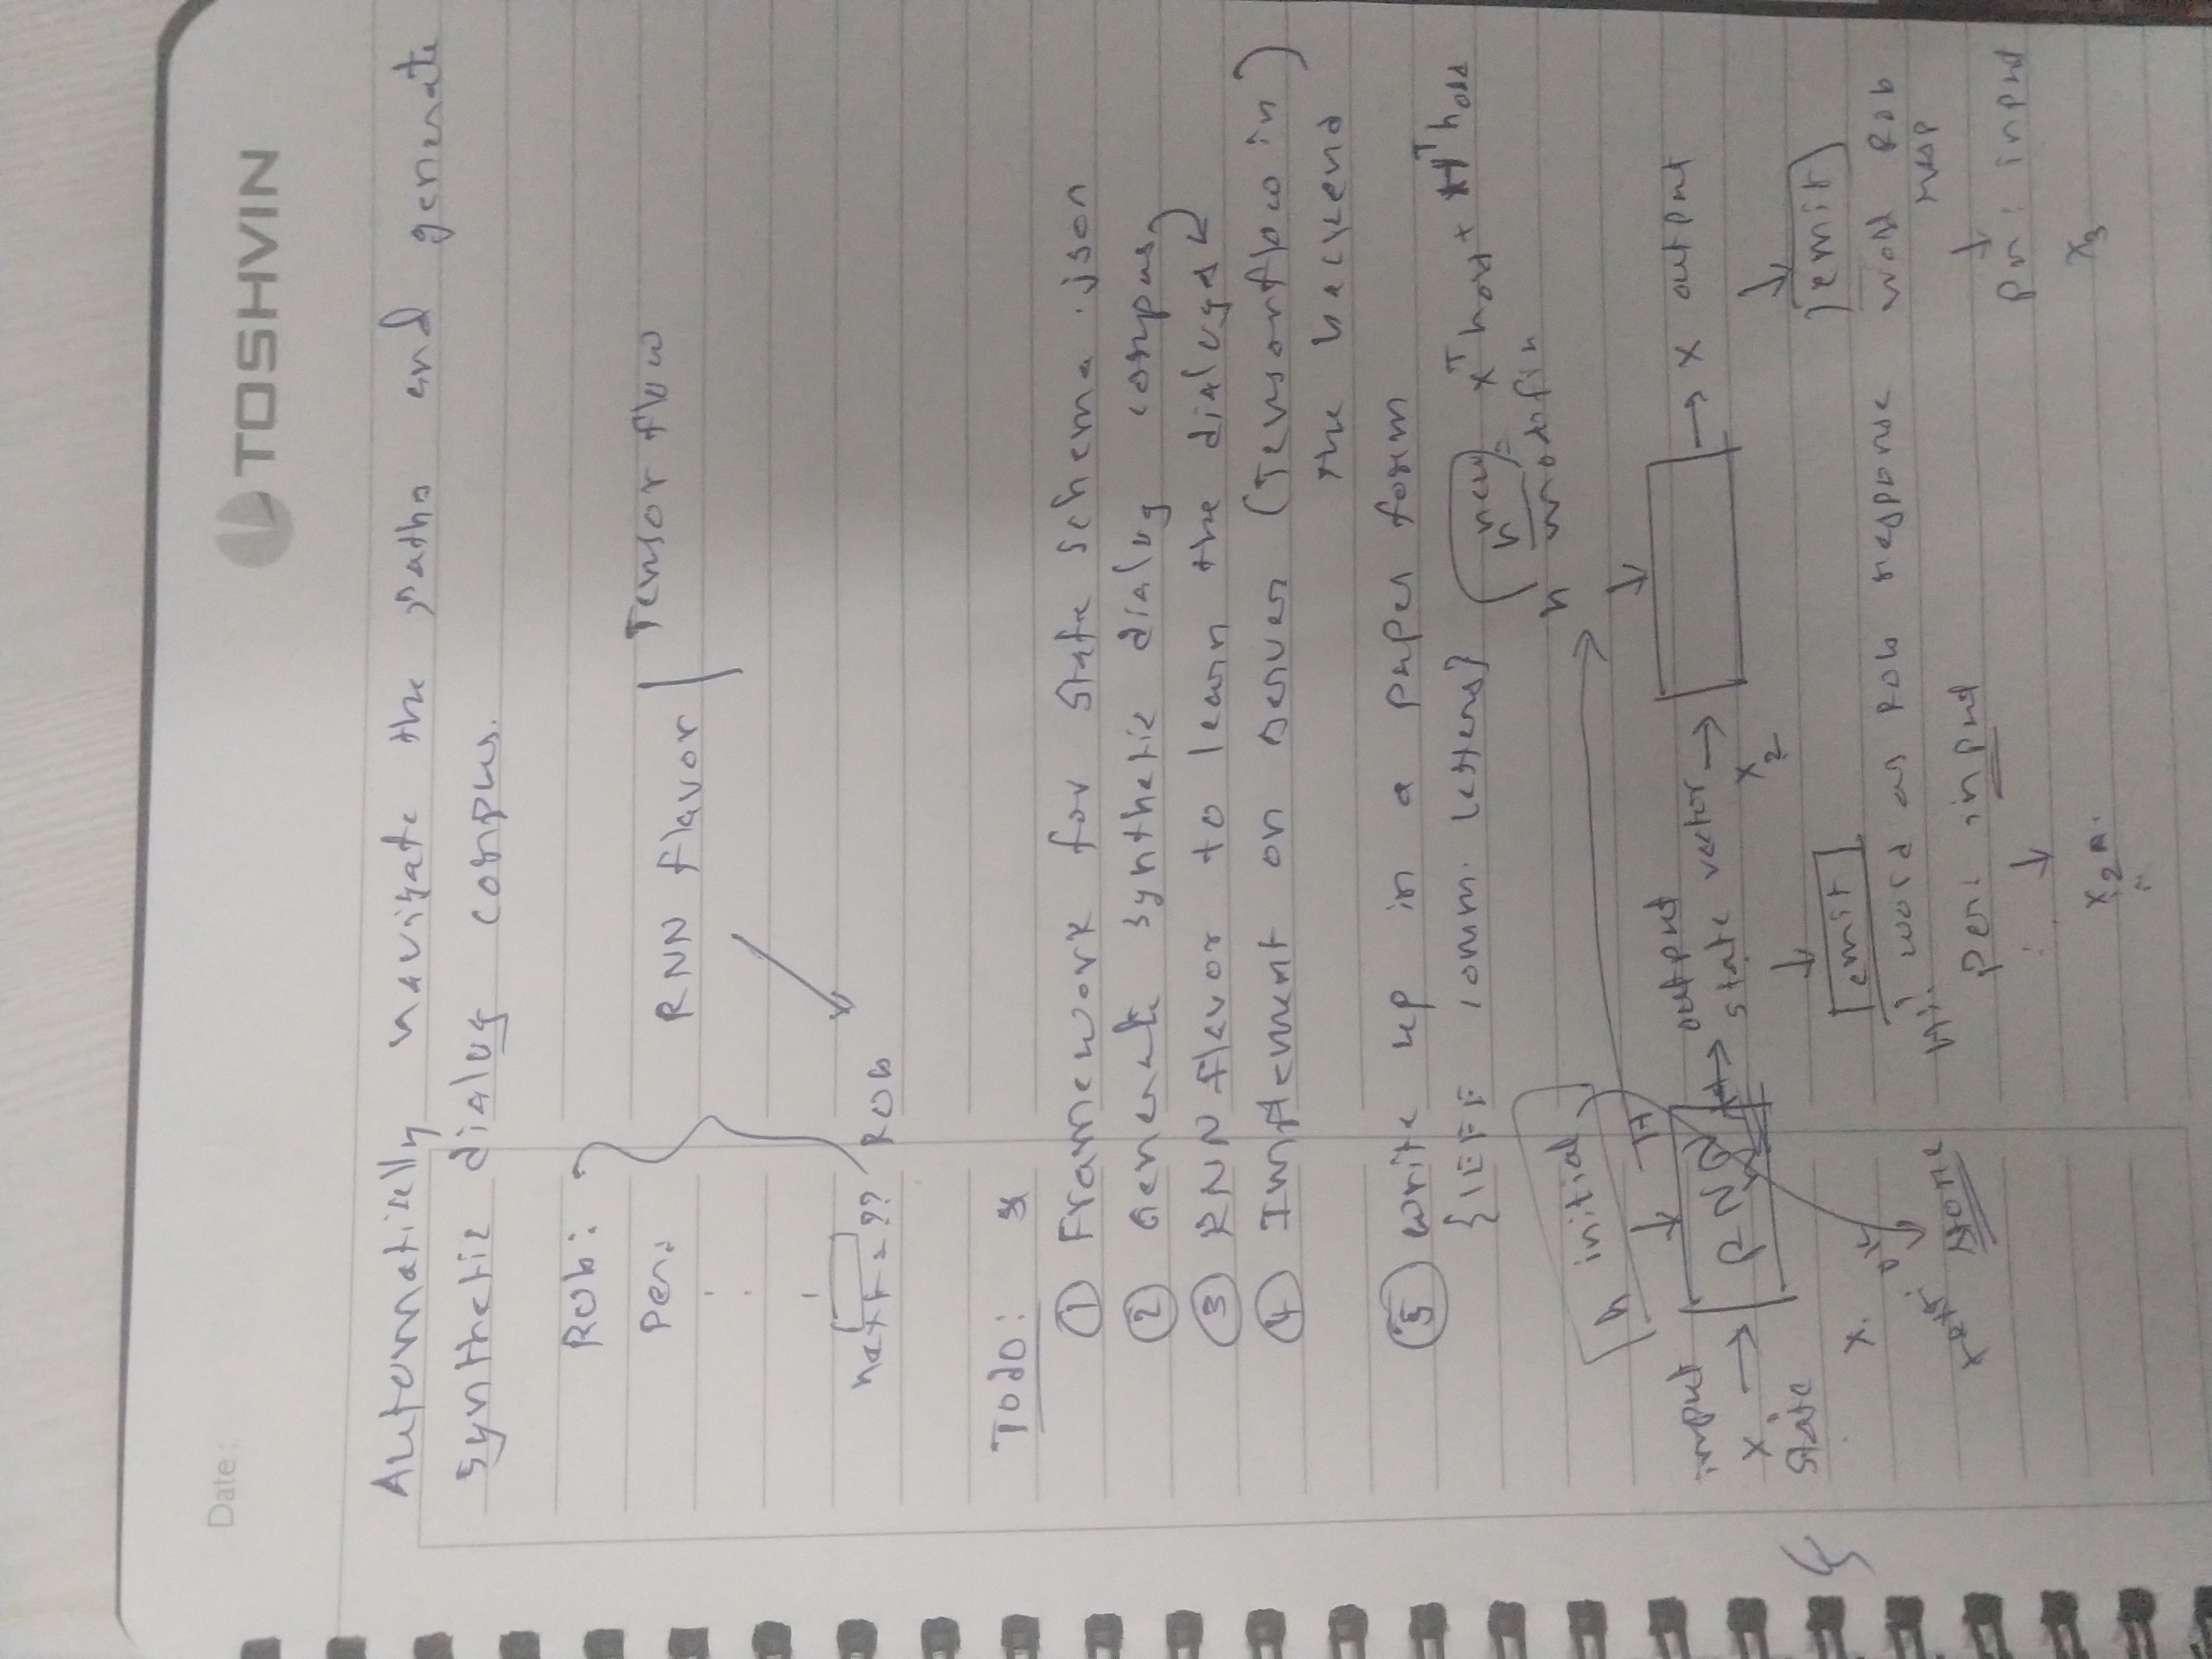 Date:
TOSHVIN
Automatically navigate the paths and generate
synthetic dialog corpus.
Rob:
Per:
RNN flavor | Tensor flow
next = ?? Rob
Todo:
① Framework for state schema.json
② Generate synthetic dialog corpus
③ RNN flavor to learn the dialogs
④ Implement on server (Tensorflow in)
the backend
⑤ write up in a paper form
{IEEE comm. letters}
h new = x^T h old + H^T h old
h
h initial
H
input
x
state
RNN
output
state vector
x2
x output
emit
emit
x.
text: ok
store
Hi! word as Rob response
word Rob
resp
Per: input
Per: input
x2
x3